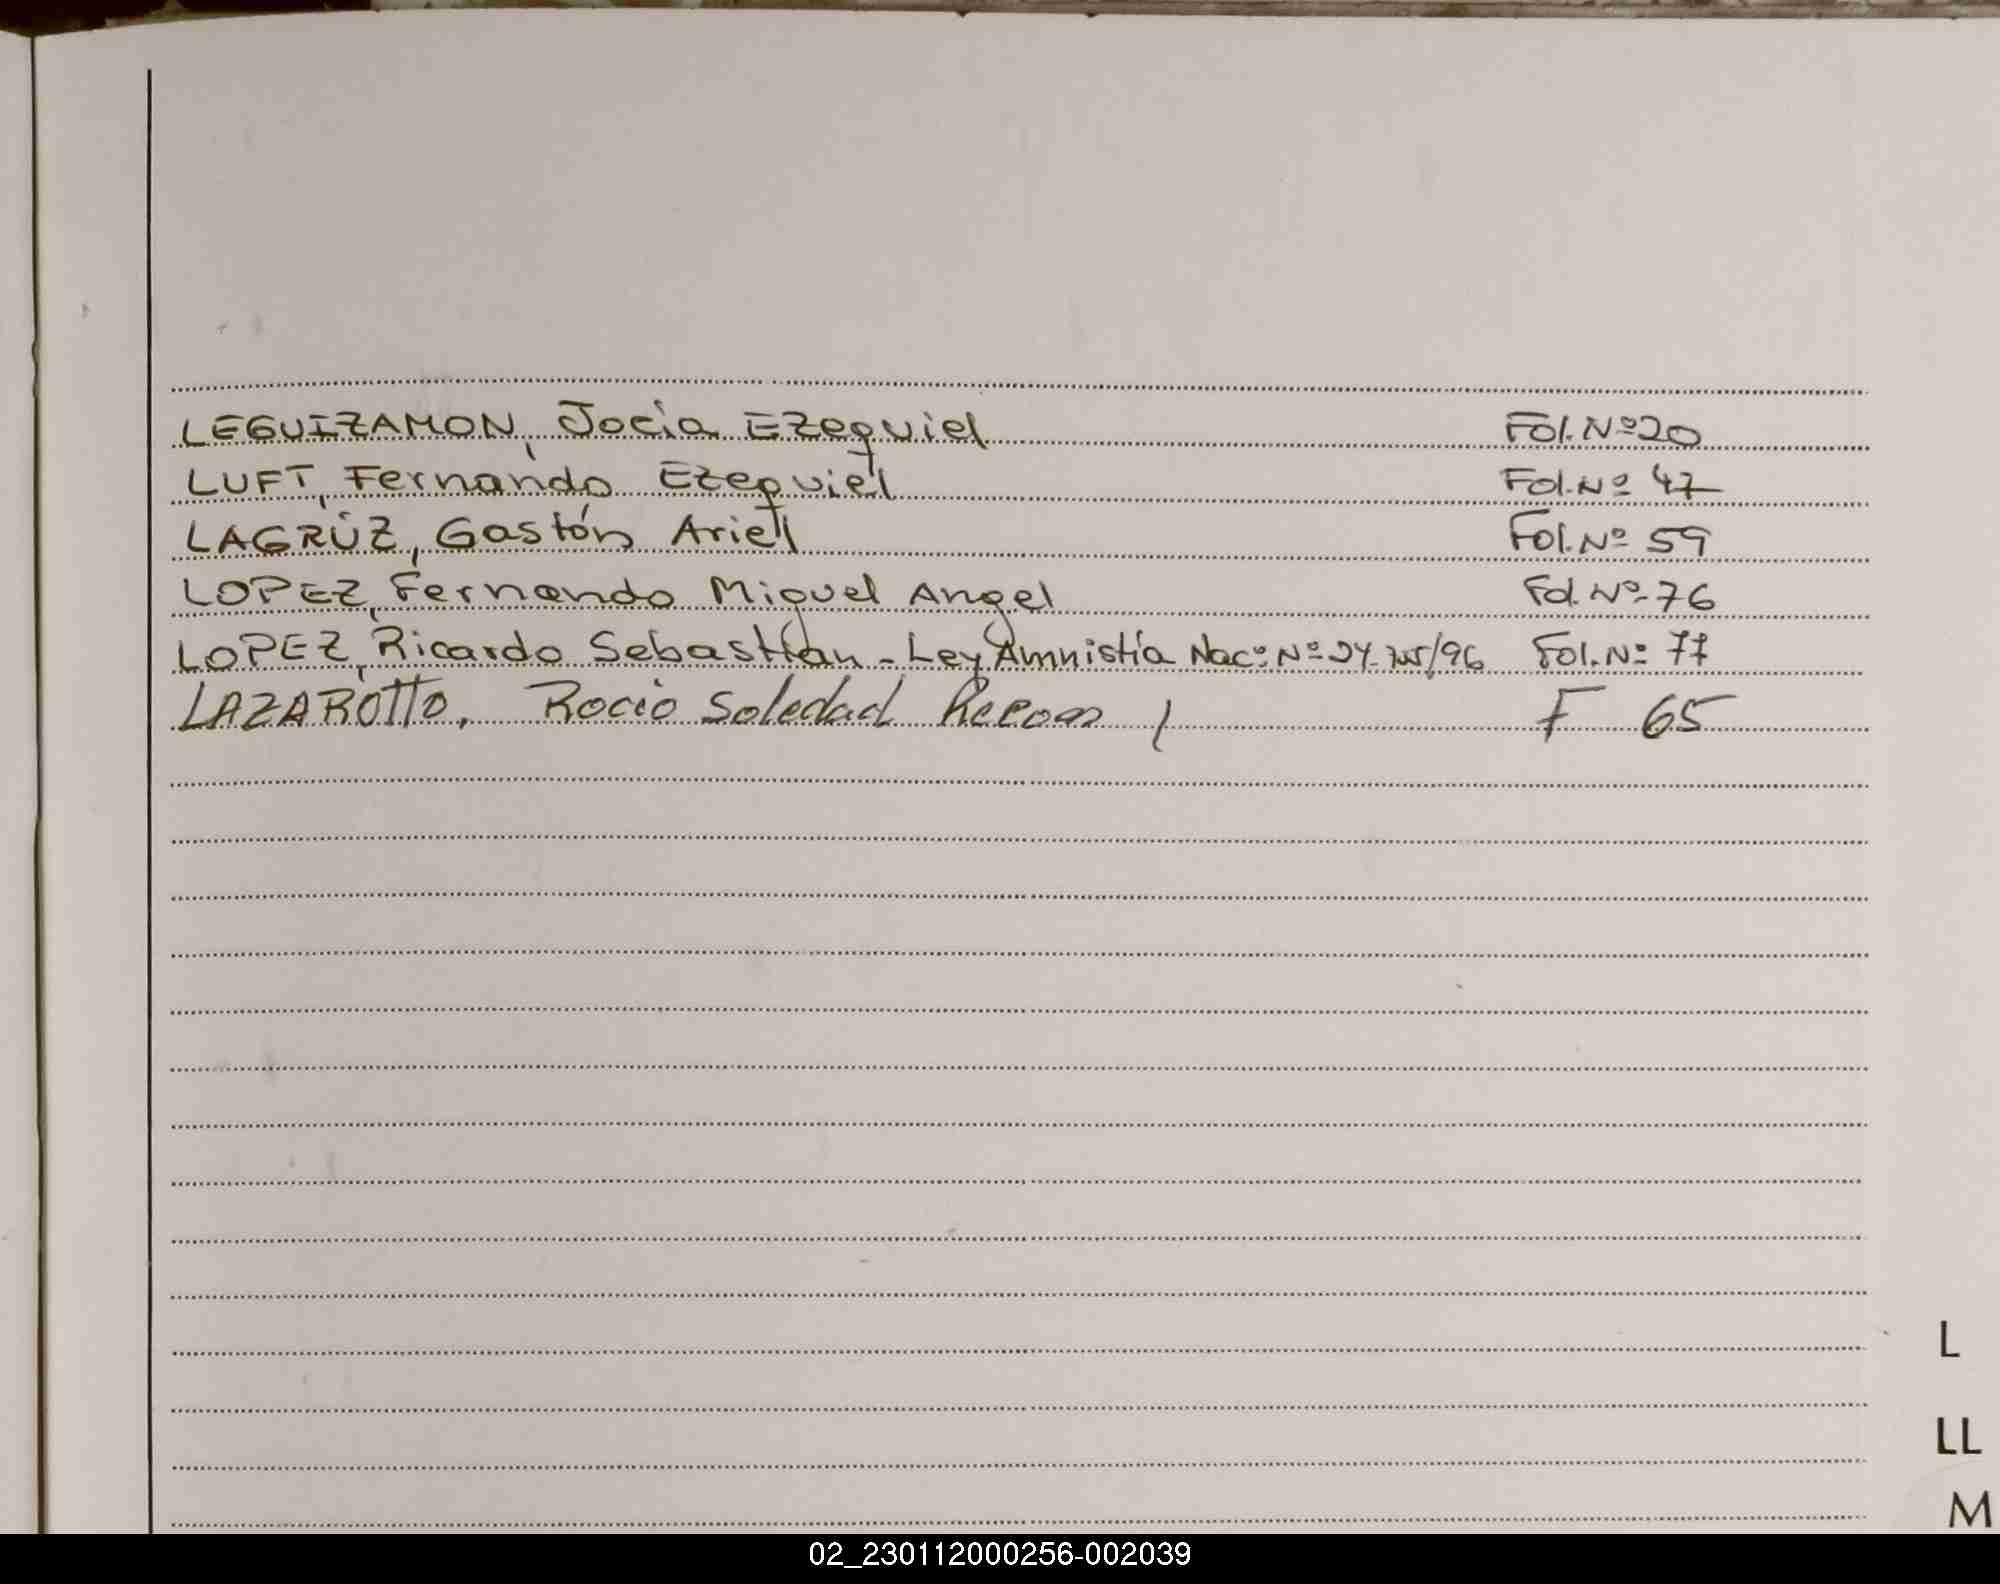 LEGUIZAMON, Jocia Ezequiel Fol. Nº 20
LUFT, Fernando Ezequiel Fol. Nº 47
LAGRÜZ, Gastón Ariel Fol. Nº 59
LOPEZ, Fernando Miguel Angel Fol. Nº 76
LOPEZ, Ricardo Sebastian - Ley Amnistía Nac. Nº Fol. Nº 77
LAZAROTTO, Rocio Soledad F 65
L
LL
M
02_230112000256-002039